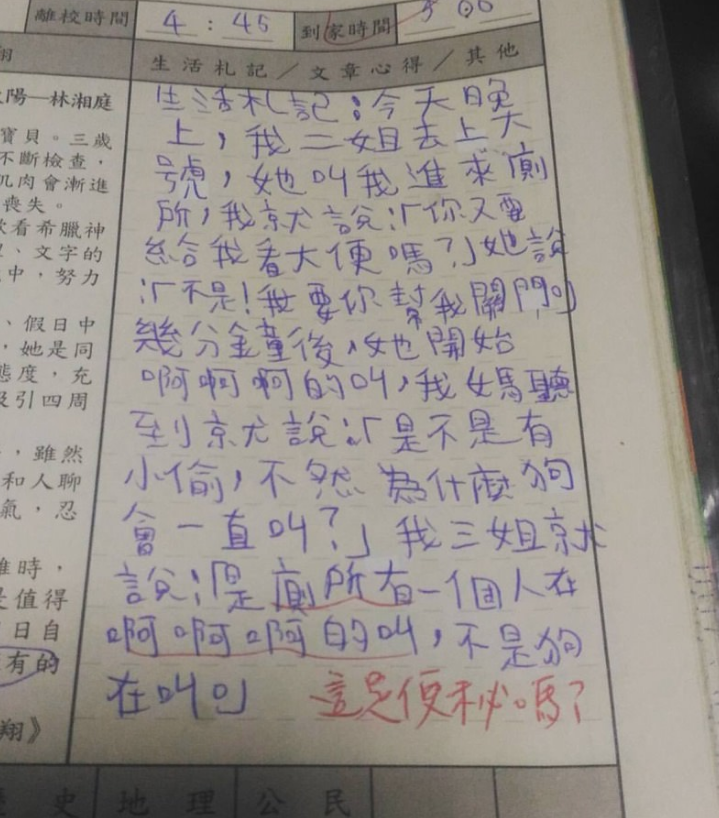 離校時間 4:45 到家時間 5 00
生活札記/文章心得/其他
生活札記：今天晚
上，我二姐去上大
號，她叫我進來廁
所，我就說：「你又要
給我看大便嗎？」她說
：「不是！我要你幫我關門。」
幾分鐘後，她開始
啊啊啊的叫，我媽聽
到就說：「是不是有
小偷，不然為什麼狗
會一直叫？」我三姐就
說：「是廁所有一個人在
啊啊啊的叫，不是狗
在叫。」 這是便秘嗎？
陽—林湘庭
寶貝。三歲
不斷檢查，
肌肉會漸進
喪失。
欢看希臘神
、文字的
中，努力
、假日中
，她是同
態度，充
吸引四周
，雖然
和人聊
氣，忍
時，
是值得
日自
有的
翔》
史 地理 公民